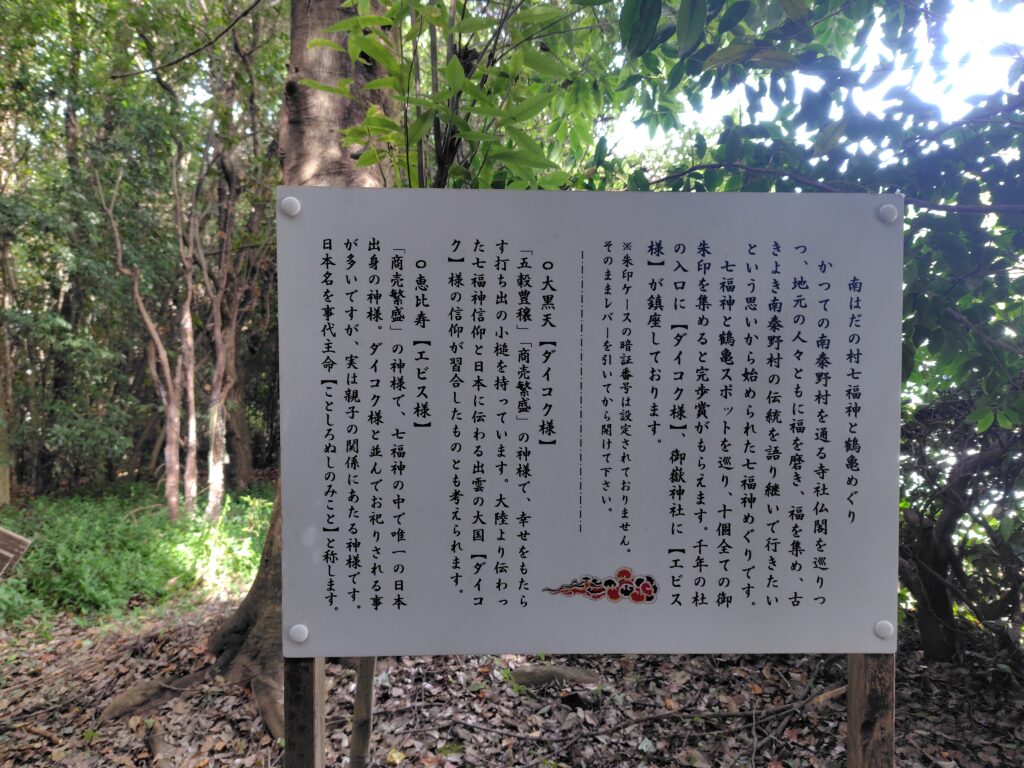 南はだの村七福神と鶴亀めぐり
かつての南秦野村を通る寺社仏閣を巡りつ
つ、地元の人々ともに福を磨き、福を集め、古
きよき南秦野村の伝統を語り継いで行きたい
という思いから始められた七福神めぐりです。
七福神と鶴亀スポットを巡り、十個全ての御
朱印を集めると完歩賞がもらえます。千年の杜
の入口に【ダイコク様】、御嶽神社に【エビス
様】が鎮座しております。
※朱印ケースの暗証番号は設定されておりません。
そのままレバーを引いてから開けて下さい。
○大黒天【ダイコク様】
「五穀豊穣」「商売繁盛」の神様で、幸せをもたら
す打ち出の小槌を持っています。大陸より伝わっ
た七福神信仰と日本に伝わる出雲の大国【ダイコ
ク】様の信仰が習合したものとも考えられます。
○恵比寿【エビス様】
「商売繁盛」の神様で、七福神の中で唯一の日本
出身の神様。ダイコク様と並んでお祀りされる事
が多いですが、実は親子の関係にあたる神様です。
日本名を事代主命【ことしろぬしのみこと】と称します。